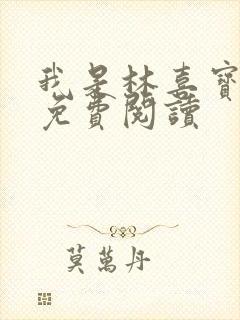 我是林喜寶
免費閱讀
莫萬丹